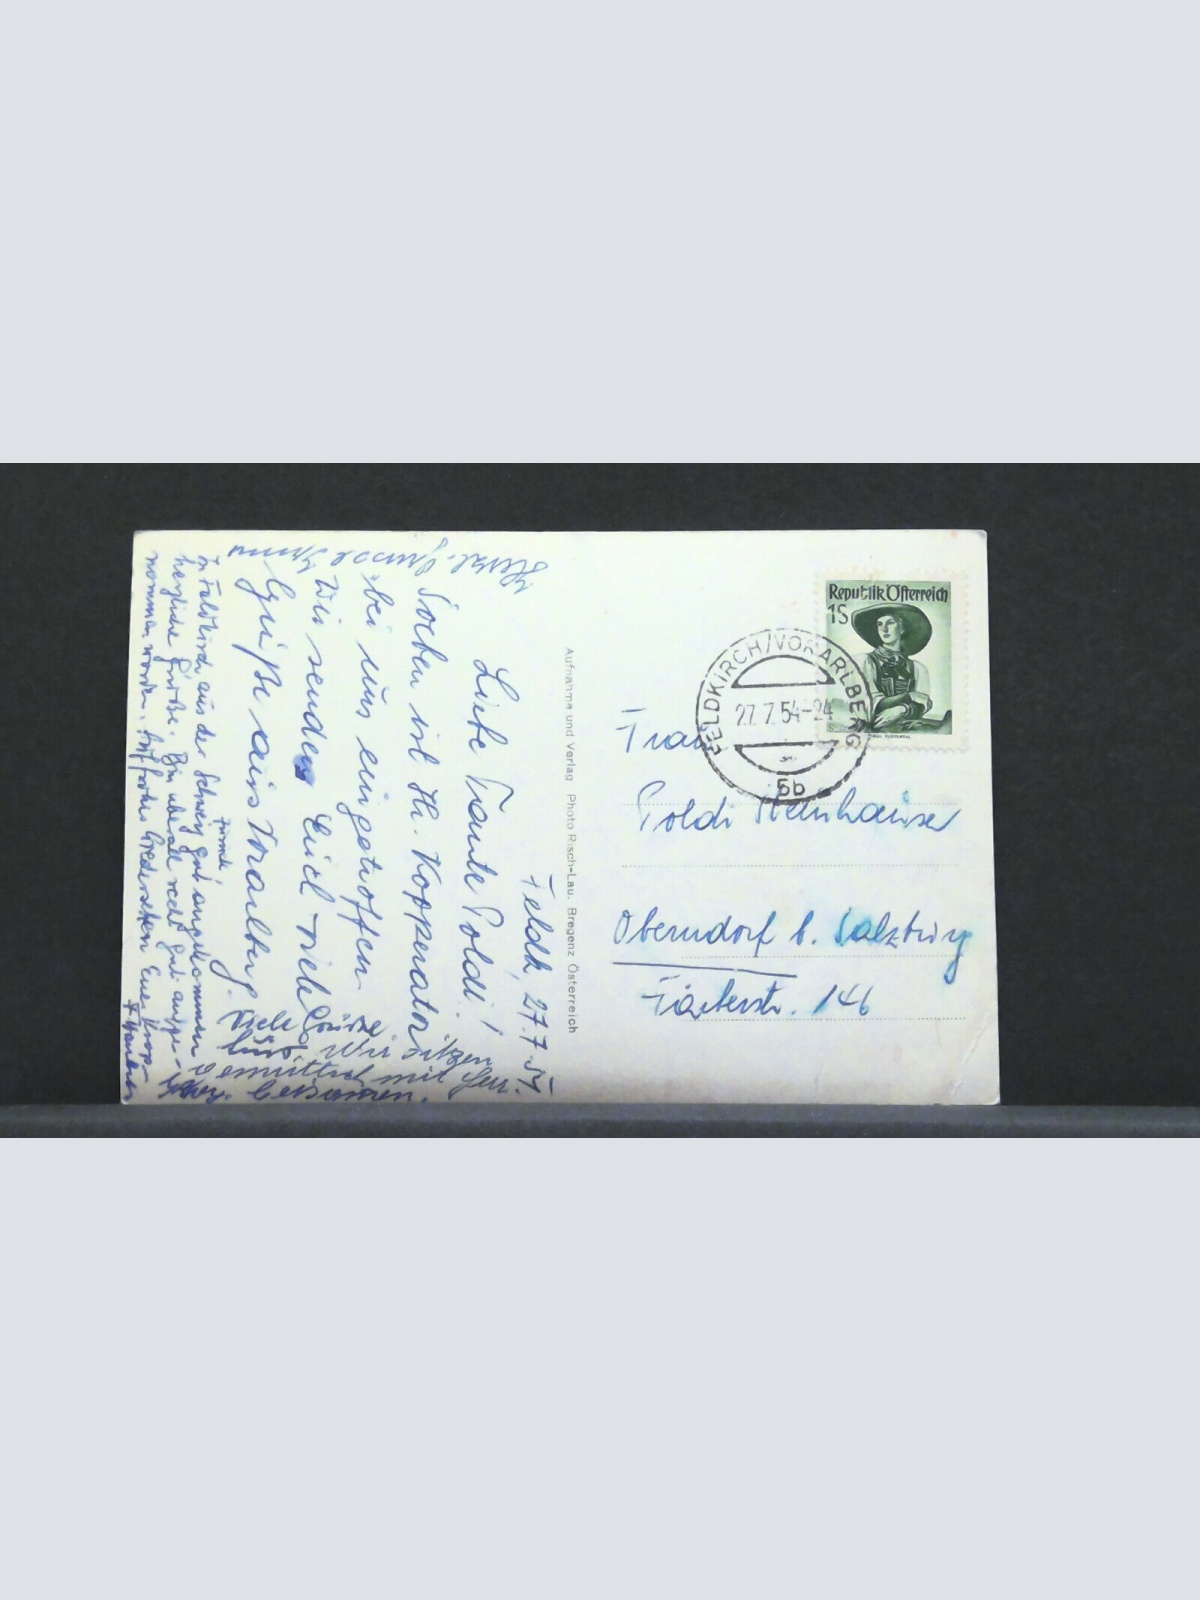 Feldk. 27.7.54
Liebe Tante Poldi!
Soeben ist Hr. Kopperator
bei uns eingetroffen.
Wir senden Euch viele
Grüße aus Vorarlberg.
Viele Grüße
Wir sitzen
gemütlich mit
beisammen.
Herzl. Grüsse
In Feldkirch aus der Schweiz gut angekommen
zurück
herzliche Grüße. Bin überall recht gut aufge-
nommen worden. Auf frohes Wiedersehen Euer Koop-
Aufnahme und Verlag Photo Risch-Lau, Bregenz Österreich
Republik Österreich
1S
FELDKIRCH/VORARLBERG
27.7.54-24
5b
Frau
Poldi Steinhauser
Oberndorf b. Salzburg
146